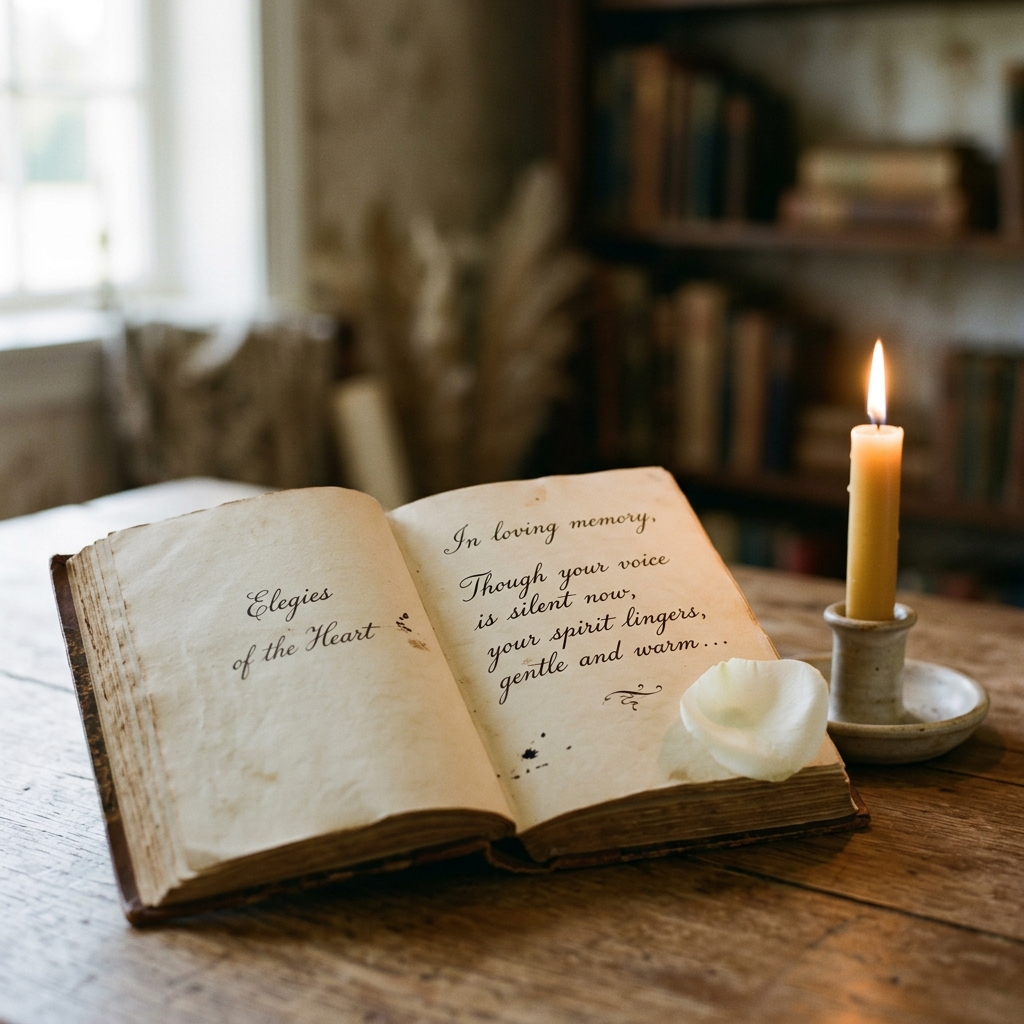 Elegies
of the Heart
In loving memory,
Though your voice
is silent now,
your spirit lingers,
gentle and warm...